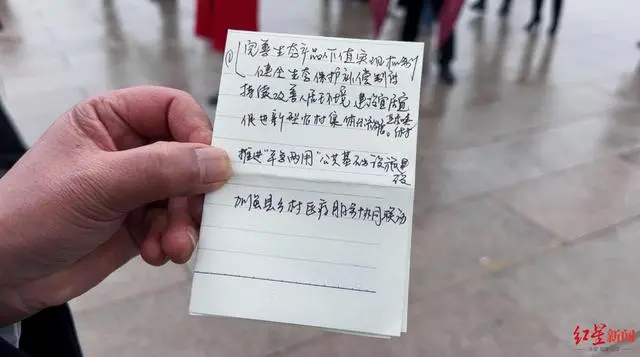 ①完善生态产品价值实现机制
健全生态保护补偿制度
持续改善人居环境 建设宜居宜
促进新型农村集体经济
推进"平急两用"公共基础设施建
设
加强县乡村医疗服务协同联动
红星新闻